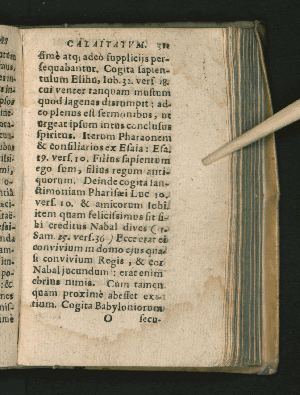 CALAITATUM. 311
simè atq; adeò supplicijs per-
sequabantur. Cogita sapien-
tulum Elihu, Iob. 32. vers 18.
cui venter tanquam mustum
quod lagenas disrumpit: ad-
eo plenus est sermonibus, ut
urgeat ipsum intus conclusus
spiritus. Iterum Pharaonem
& consiliarios ex Esaia: Esa.
19. vers. 10. Filius sapientum
ego sum, filius regum anti-
quorum. Deinde cogita san-
ctimoniam Pharisæi Luc 10.
vers. 10. & amicorum Iobi
item quam felicissimus sit si-
bi creditus Nabal dives (1.
Sam. 25. vers. 36) Ecce erat ei
convivium in domo ejus qua-
si convivium Regis, & cor
Nabal jucundum: erat enim
ebrius nimis. Cum tamen
quam proximè abesset exi-
tium. Cogita Babyloniorum
O secu-